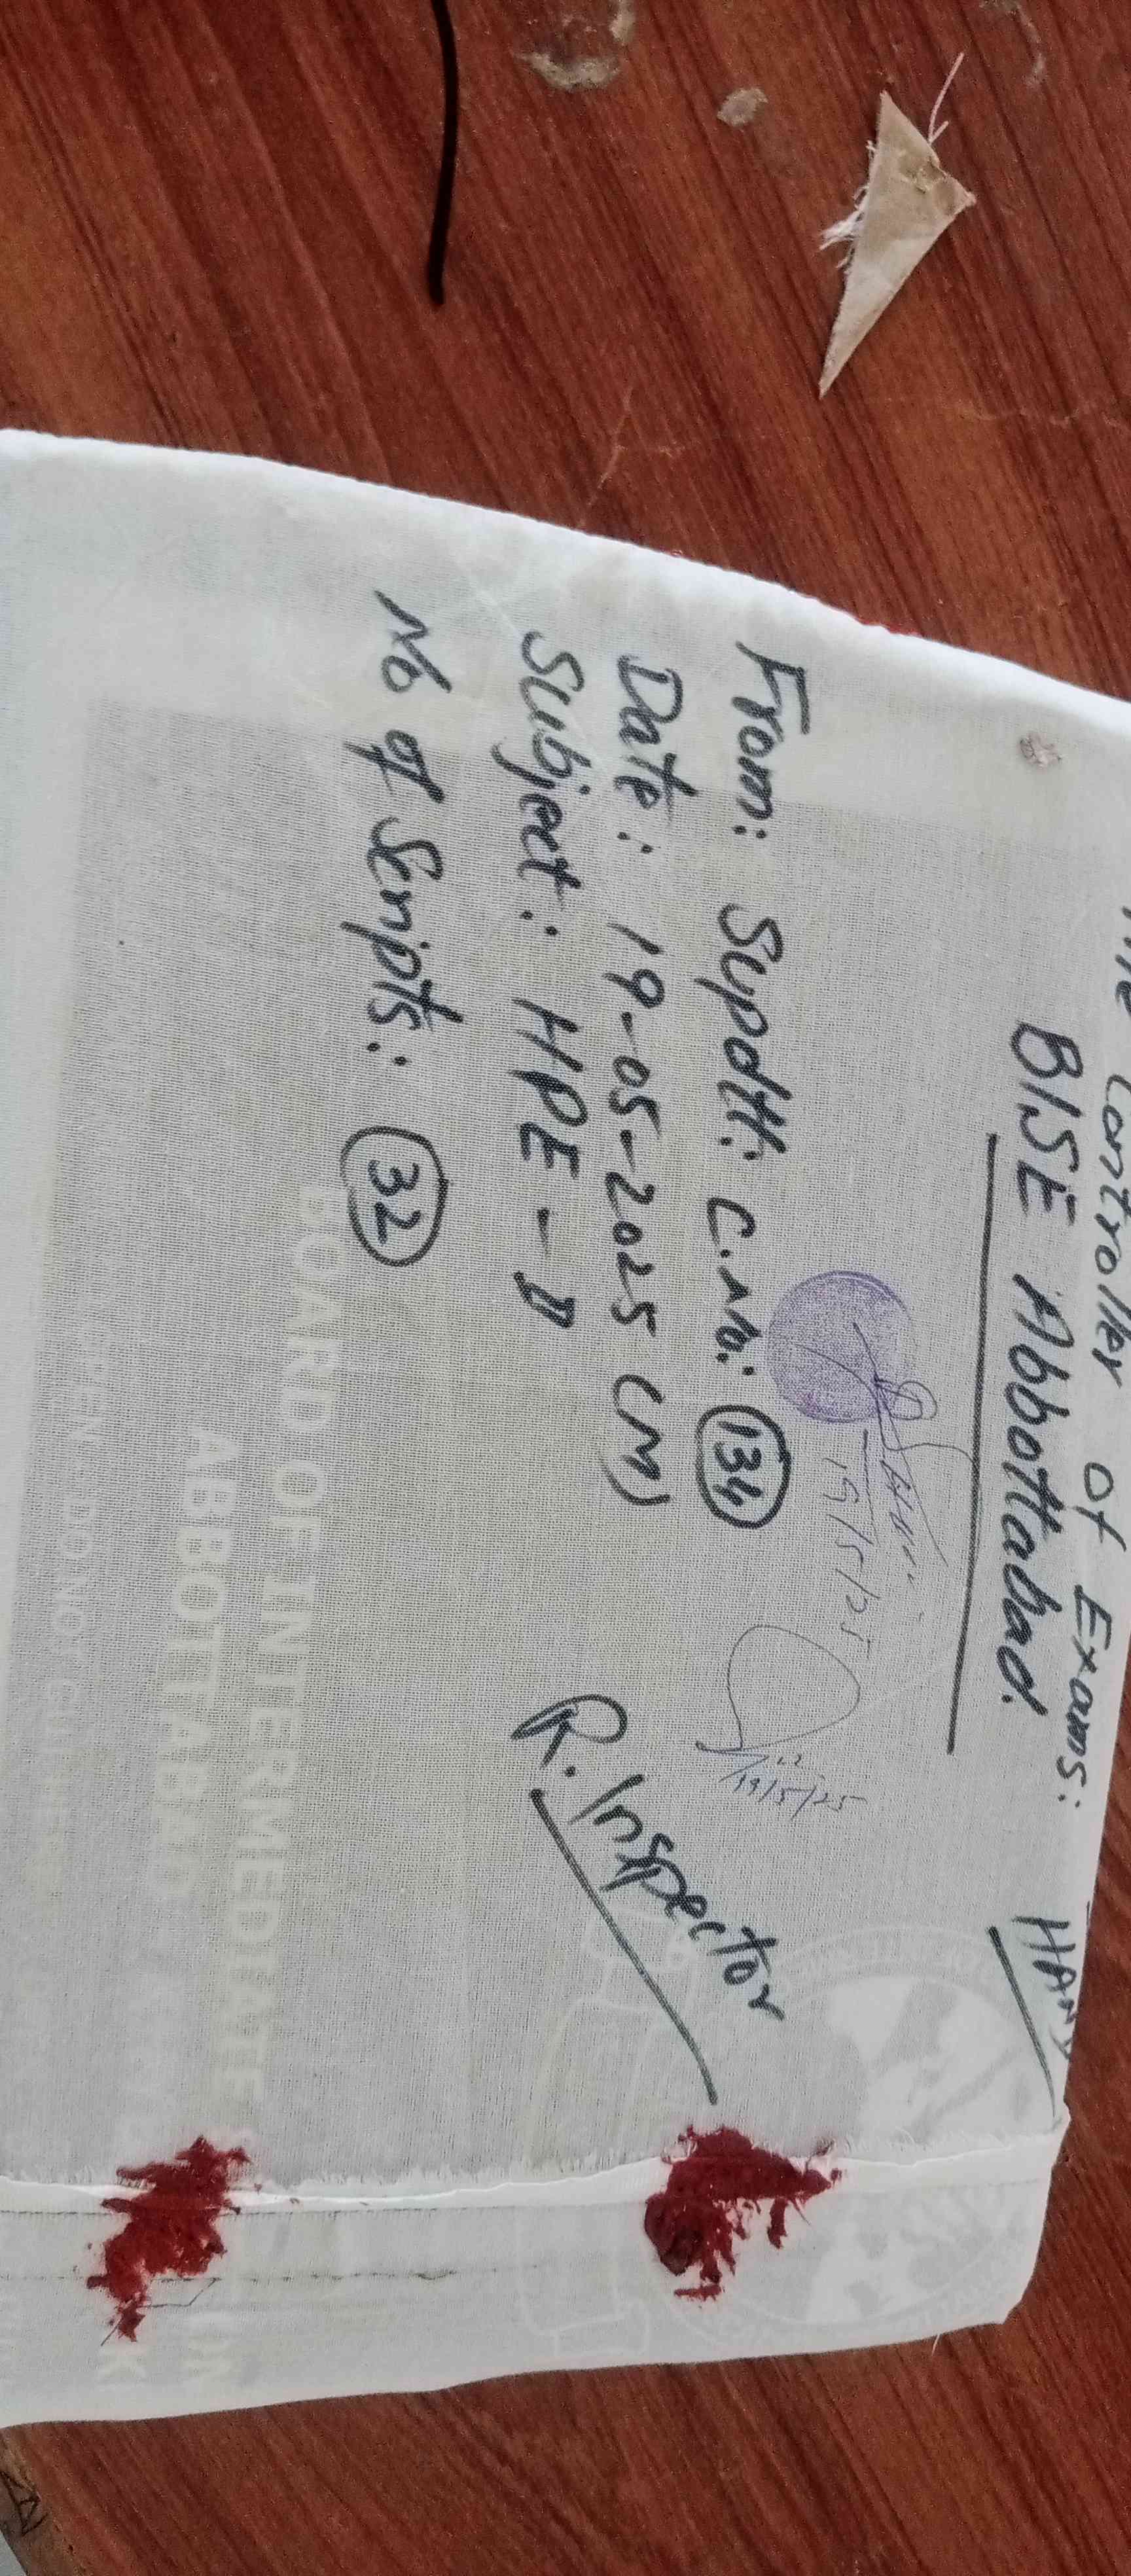 The Controller of Exams:
BISE Abbottabad.
19/5/25
19/5/25
From: Supdtt. C.No: 134
Date: 19-05-2025 (M)
Subject: HPE-II
No of Scripts: 32
R. Inspector
BOARD OF INTERMEDIATE
ABBOTTABAD